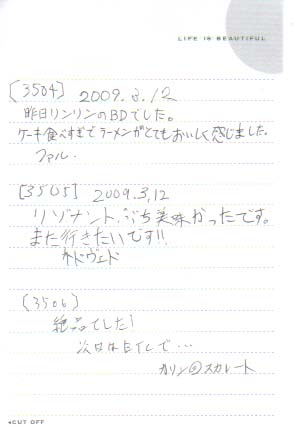 LIFE IS BEAUTIFUL
[3504] 2009.3.12
昨日リンリンのBDでした。
ケーキ食べすぎでラーメンがとてもおいしく感じました。
ファル.
[3505] 2009.3.12
リゾナント、ぶち美味かったです。
また行きたいです!!
ネドヴェド
[3506]
絶品でした!
次は
カリン@スカレート
CUT OFF